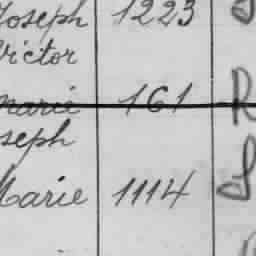 Joseph 1223
Victor
Marie 161 R
Joseph
Marie 1114